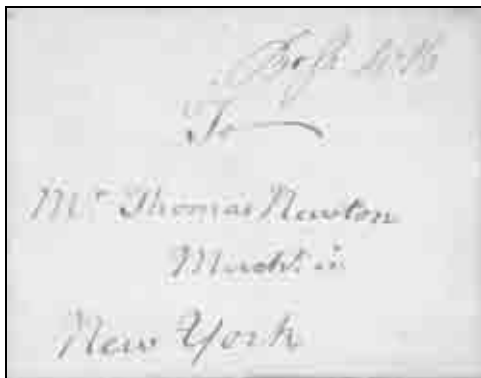 To
Mr Thomas Newton
Mercht in
New York